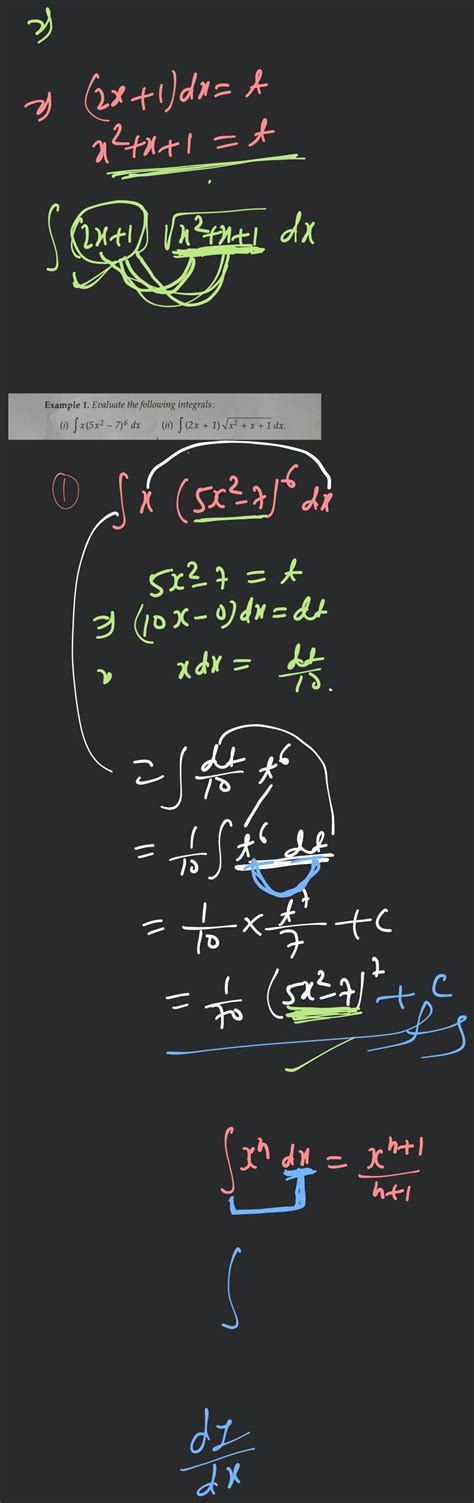 2)
⇒ (2x+1)dx = t
x²+x+1 = t
∫ (2x+1) √x²+x+1 dx
Example 1. Evaluate the following integrals:
(i) ∫ x(5x² – 7)⁶ dx (ii) ∫ (2x + 1) √x² + x + 1 dx.
① ∫ x (5x²-7)⁶ dx
5x²-7 = t
⇒ (10x-0)dx = dt
xdx = dt/10.
= ∫ dt/10 t⁶
= 1/10 ∫ t⁶ dt
= 1/10 × t⁷/7 + C
= 1/70 (5x²-7)⁷ + C
∫ xⁿ dx = xⁿ⁺¹/n+1
∫